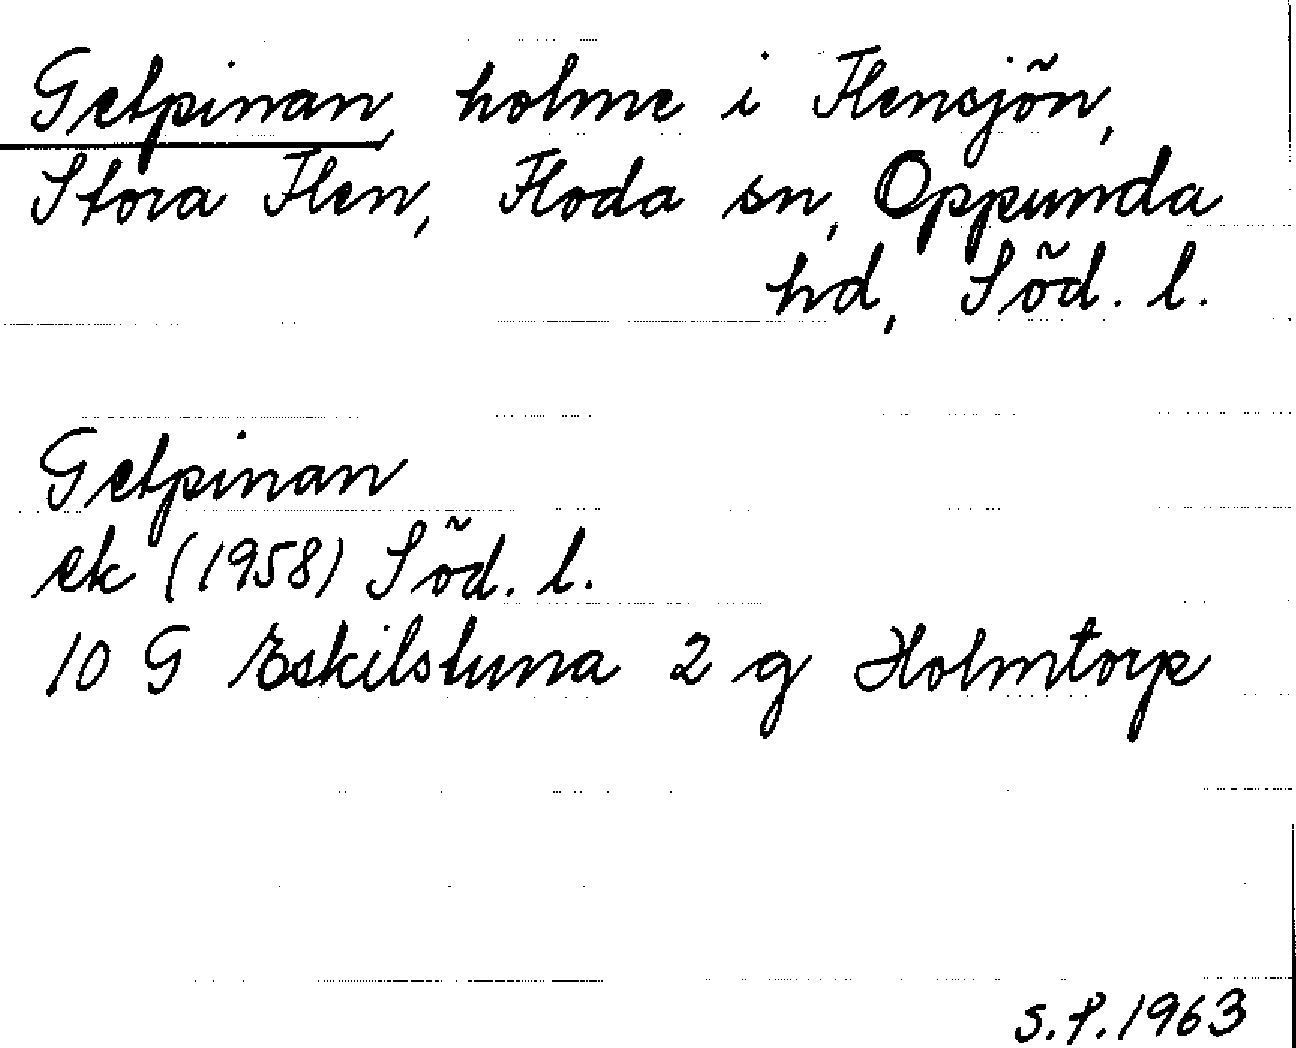 Getpinan, holme i Flensjön,
Stora Flen, Floda sn, Oppunda
hd, Söd. l.
Getpinan
ek (1958) Söd. l.
10 G Eskilstuna 2 g Holmtorp
S.P. 1963